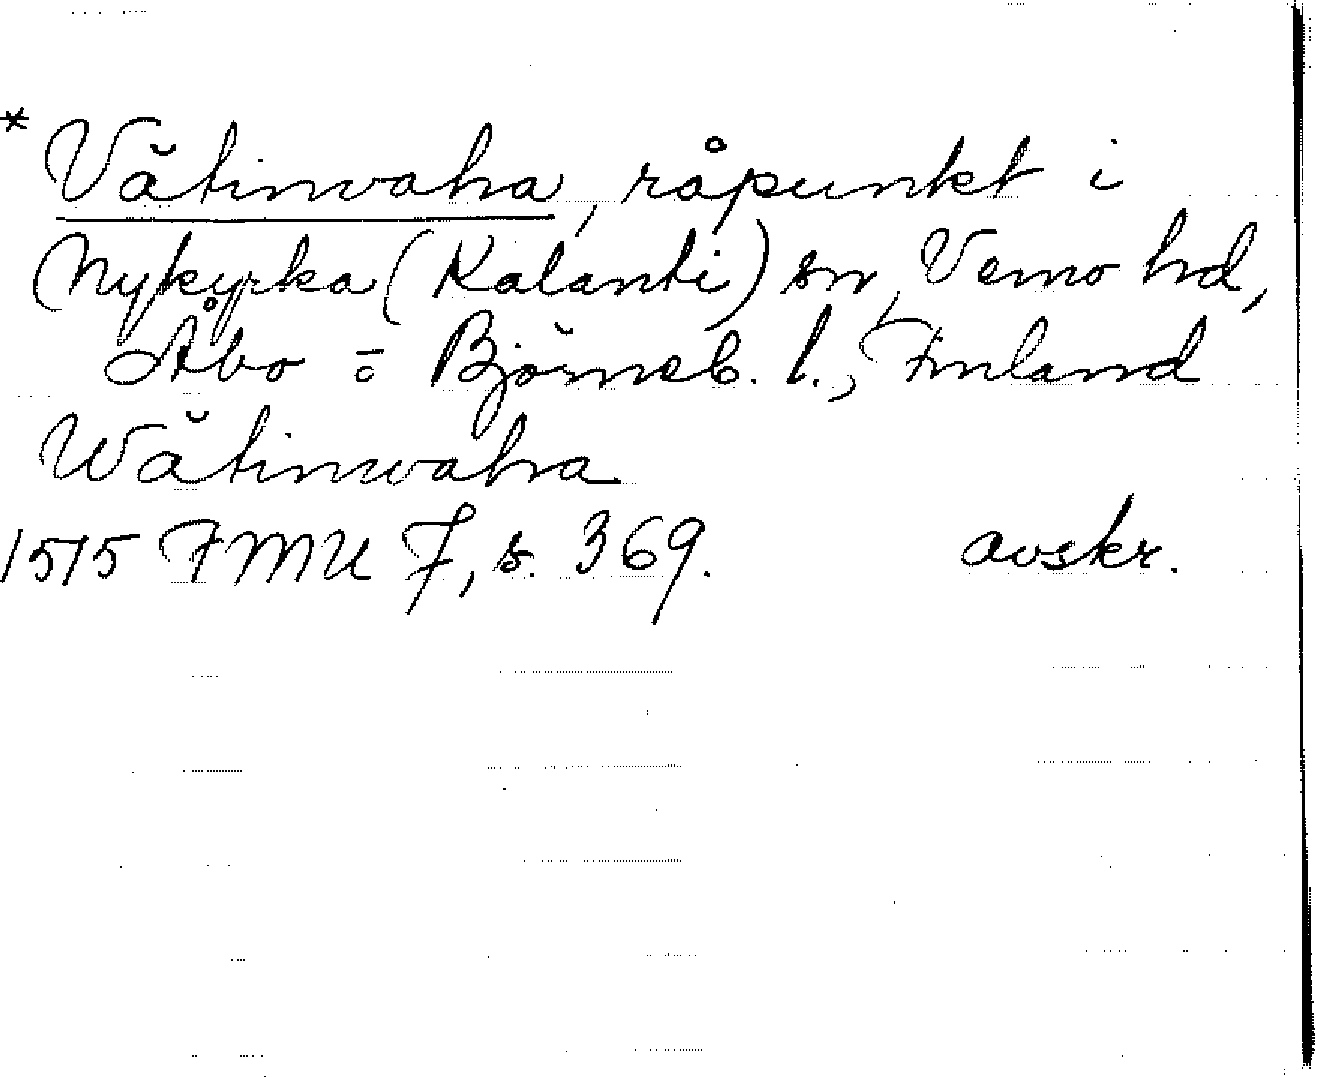 * Vätinvaha, råpunkt i
Nykyrka (Kalanti) sn, Vemo hd,
Åbo = Björneb. l., Finland
Wätinwaha
1515 FMU 7, s. 369. avskr.